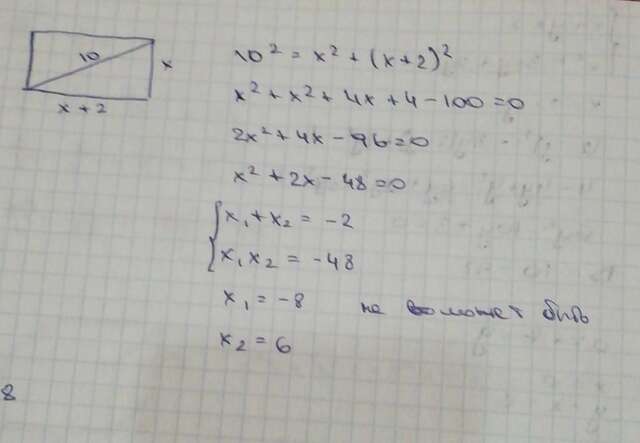 10
x
x + 2
10² = x² + (x+2)²
x² + x² + 4x + 4 - 100 = 0
2x² + 4x - 96 = 0
x² + 2x - 48 = 0
x₁ + x₂ = -2
x₁ x₂ = -48
x₁ = -8 не может быть
x₂ = 6
8